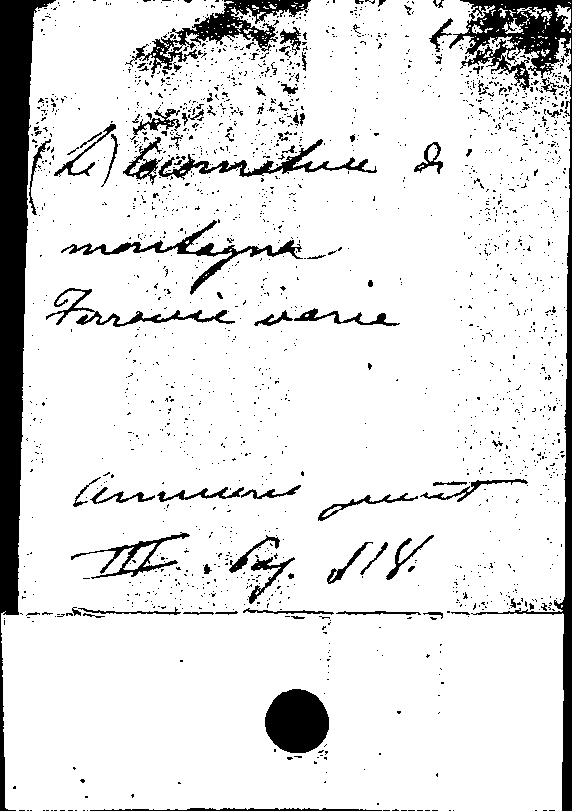 (Le) locomotive di
montagna
Ferrovie varie
Annuario scient
III. Pag. 518.